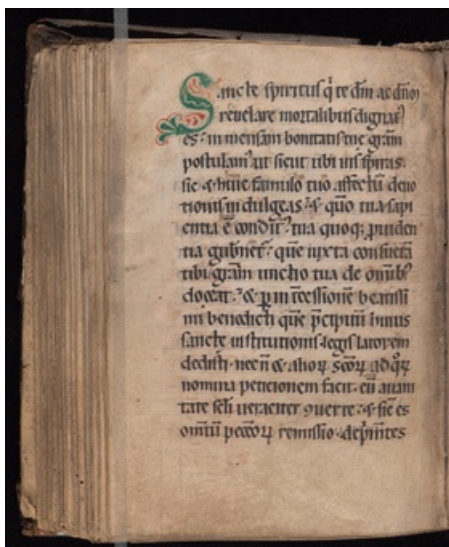 Sancte spiritus q̄ te dm̄ ac dn̄m
revelare mortalibus dignat᷒
es· in mensam bonitatis tue gr̄am
postulam᷒ ut sicut ubi uis spiras·
sic & huic famulo tuo affectū deuo
tionis indulgeas· & qm̄o tua sapi
entia ē condit᷒ tua quoq; p̱uiden
tia gub̄net᷒· quē iuxta consuetā
tibi gr̄am unctio tua de omib᷒
doceat· & p̱ int̄cessionē beatissi
mi benedicti quē p̄cipuū huius
sancte institutionis legislatorem
dedisti· nec n̄ & alioꝝ sc̄oꝝ ad q̊ꝝ
nomina peticionem facit· eū a uani
tate sc̄li ueraciter ꝯuerte· & sic es
omīū pecc̄oꝝ remissio· dep̄m̄tes